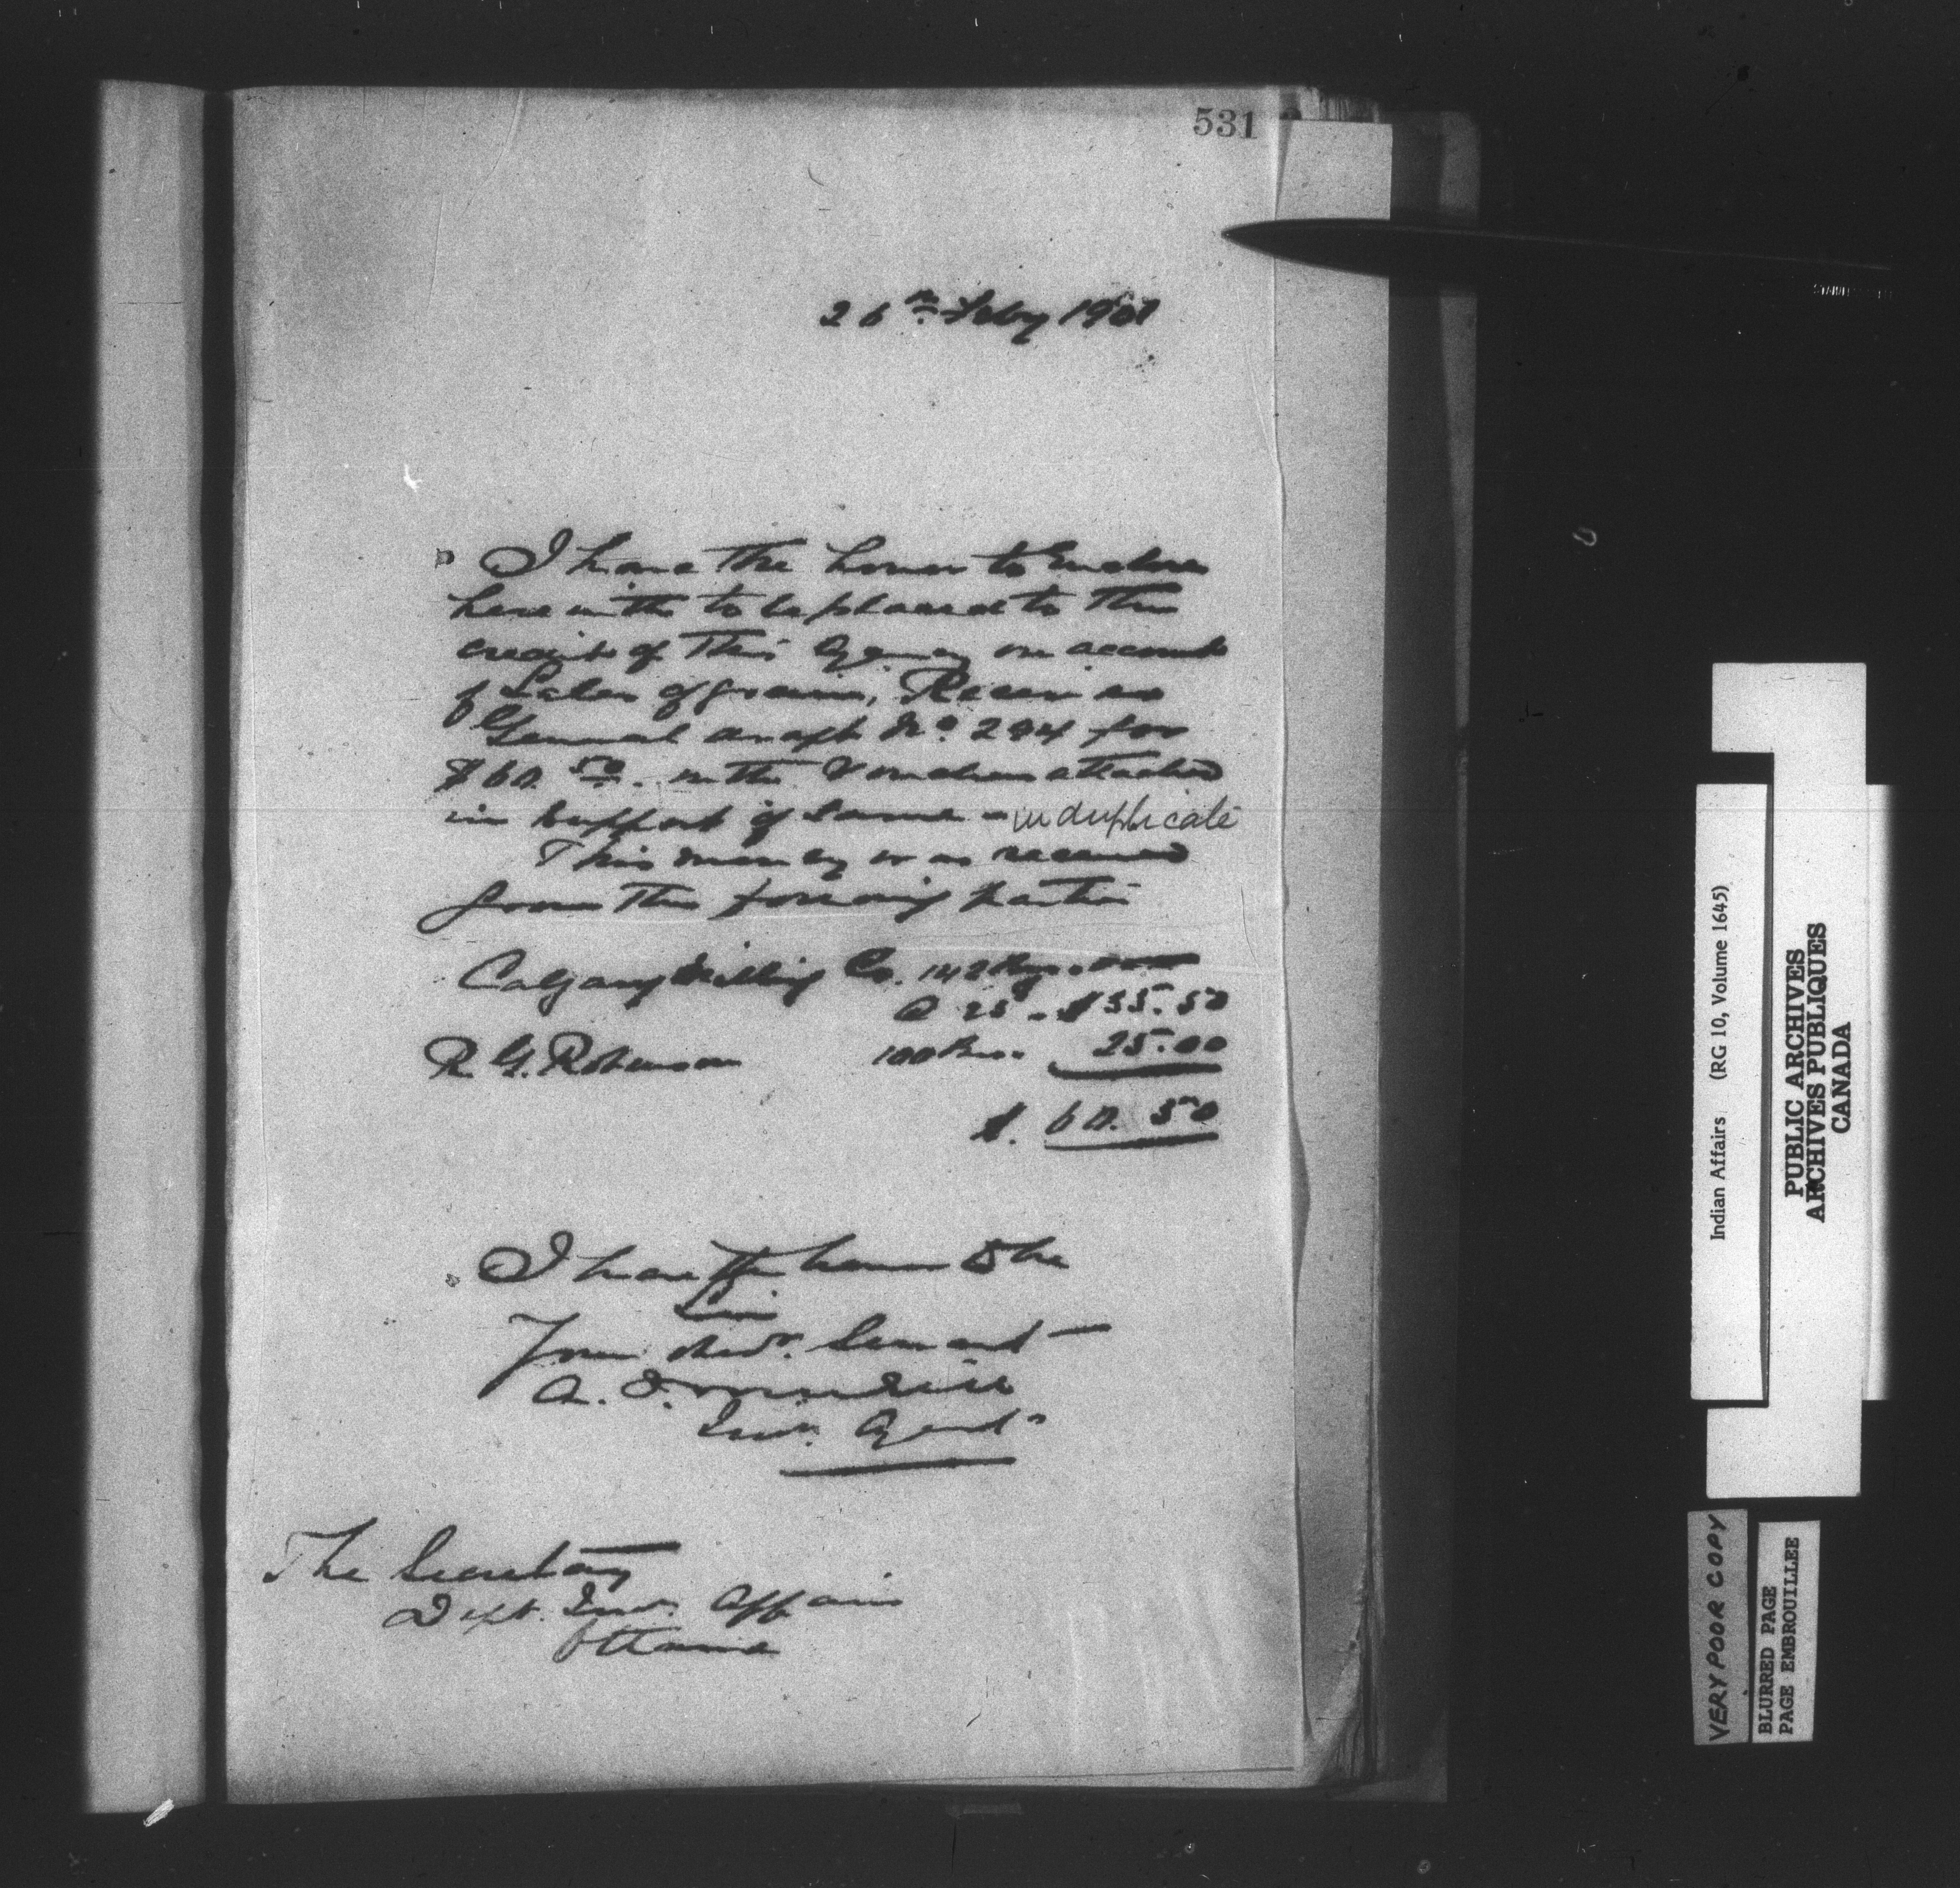 531
26th Feby 1901
I have the honor to enclose
herewith to be placed to the
credit of this Agency on account
of Sales of grain, Receiver
General draft No. 294 for
$60.50. with Vouchers attached
in support of same - in duplicate
This money was received
from the parties
Calgary Milling Co. 142 Bus.
@ 25 - $35.50
R. G. Robinson 100 Bus. 25.00
$. 60.50
I have the honor to be
Sir
Your Obedt. Servant
Ind. Agent
The Secretary
Dept. Ind. Affairs
Ottawa
Indian Affairs (RG 10, Volume 1645)
PUBLIC ARCHIVES
ARCHIVES PUBLIQUES
CANADA
VERY POOR COPY
BLURRED PAGE
PAGE EMBROUILLEE